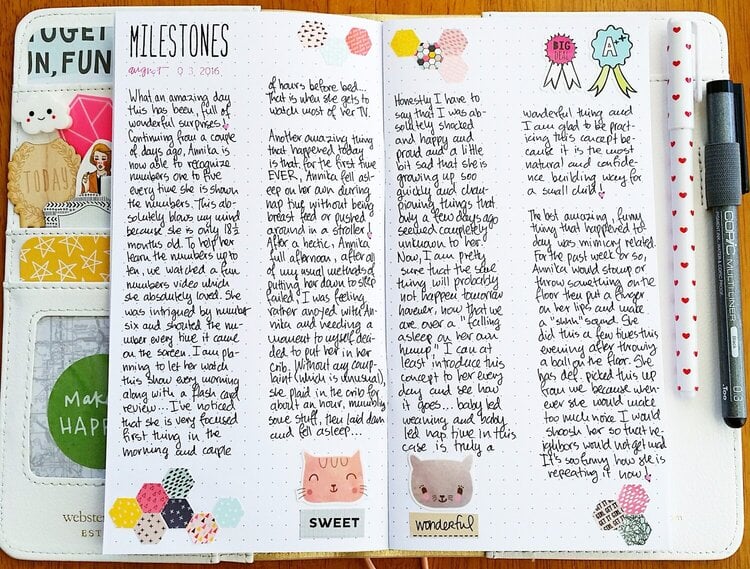 TOGET
UN, FUN
TODAY
Make
HAPP
webster
EST
MILESTONES
august 03, 2016
What an amazing day
this has been, full of
wonderful surprises!
Continuing from a couple
of days ago, Annika is
now able to recognize
numbers one to five
every time she is shown
the numbers. This ab-
solutely blows my mind
because she is only 18½
months old. To help her
learn the numbers up to
ten, we watched a few
numbers video which
she absolutely loved. She
was intrigued by number
six and shouted the nu-
mber every time it came
on the screen. I am pla-
nning to let her watch
this show every morning
along with a flash card
review... I've noticed
that she is very focused
first thing in the
morning and couple
of hours before bed...
that is when she gets to
watch most of her TV.
Another amazing thing
that happened today
is that, for the first time
EVER, Annika fell asl-
eep on her own during
nap time without being
breast feed or pushed
around in a stroller!
After a hectic, Annika
full afternoon, after all
of my usual methods of
putting her down to sleep
failed, I was feeling
rather annoyed with An-
nika and needing a
moment to myself deci-
ded to put her in her
crib. Without any comp-
laint (which is unusual),
she plaid in the crib for
about an hour, mumbling
some stuff, then laid down
and fell asleep...
SWEET
Honestly I have to
say that I was ab-
solutely shocked
and happy and
proud and a little
bit sad that she is
growing up soo
quickly and cham-
pioning things that
only a few days ago
seemed completely
unknown to her.
Now, I am pretty
sure that the same
thing will probably
not happen tomorrow
however, now that we
are over a "falling
asleep on her own
hump," I can at
least introduce this
concept to her every
day and see how
it goes... baby led
weaning and baby
led nap time in this
case is truly a
wonderful
BIG
DEAL
A+
wonderful thing and
I am glad to be pract-
icing this concept be-
cause it is the most
natural and confide-
nce building way for
a small child!
The best amazing, funny
thing that happened to-
day was mimicry related.
For the past week or so,
Annika would stomp or
throw something on the
floor then put a finger
on her lips and make
a "shhh" sound. She
did this a few times this
evening after throwing
a ball on the floor. She
has def. picked this up
from me because when-
ever she would make
too much noise I would
shoosh her so that ne-
ighbors would not get mad
It's so funny how she is
repeating it now!
COPIC MULTI LINER
0.3
Too